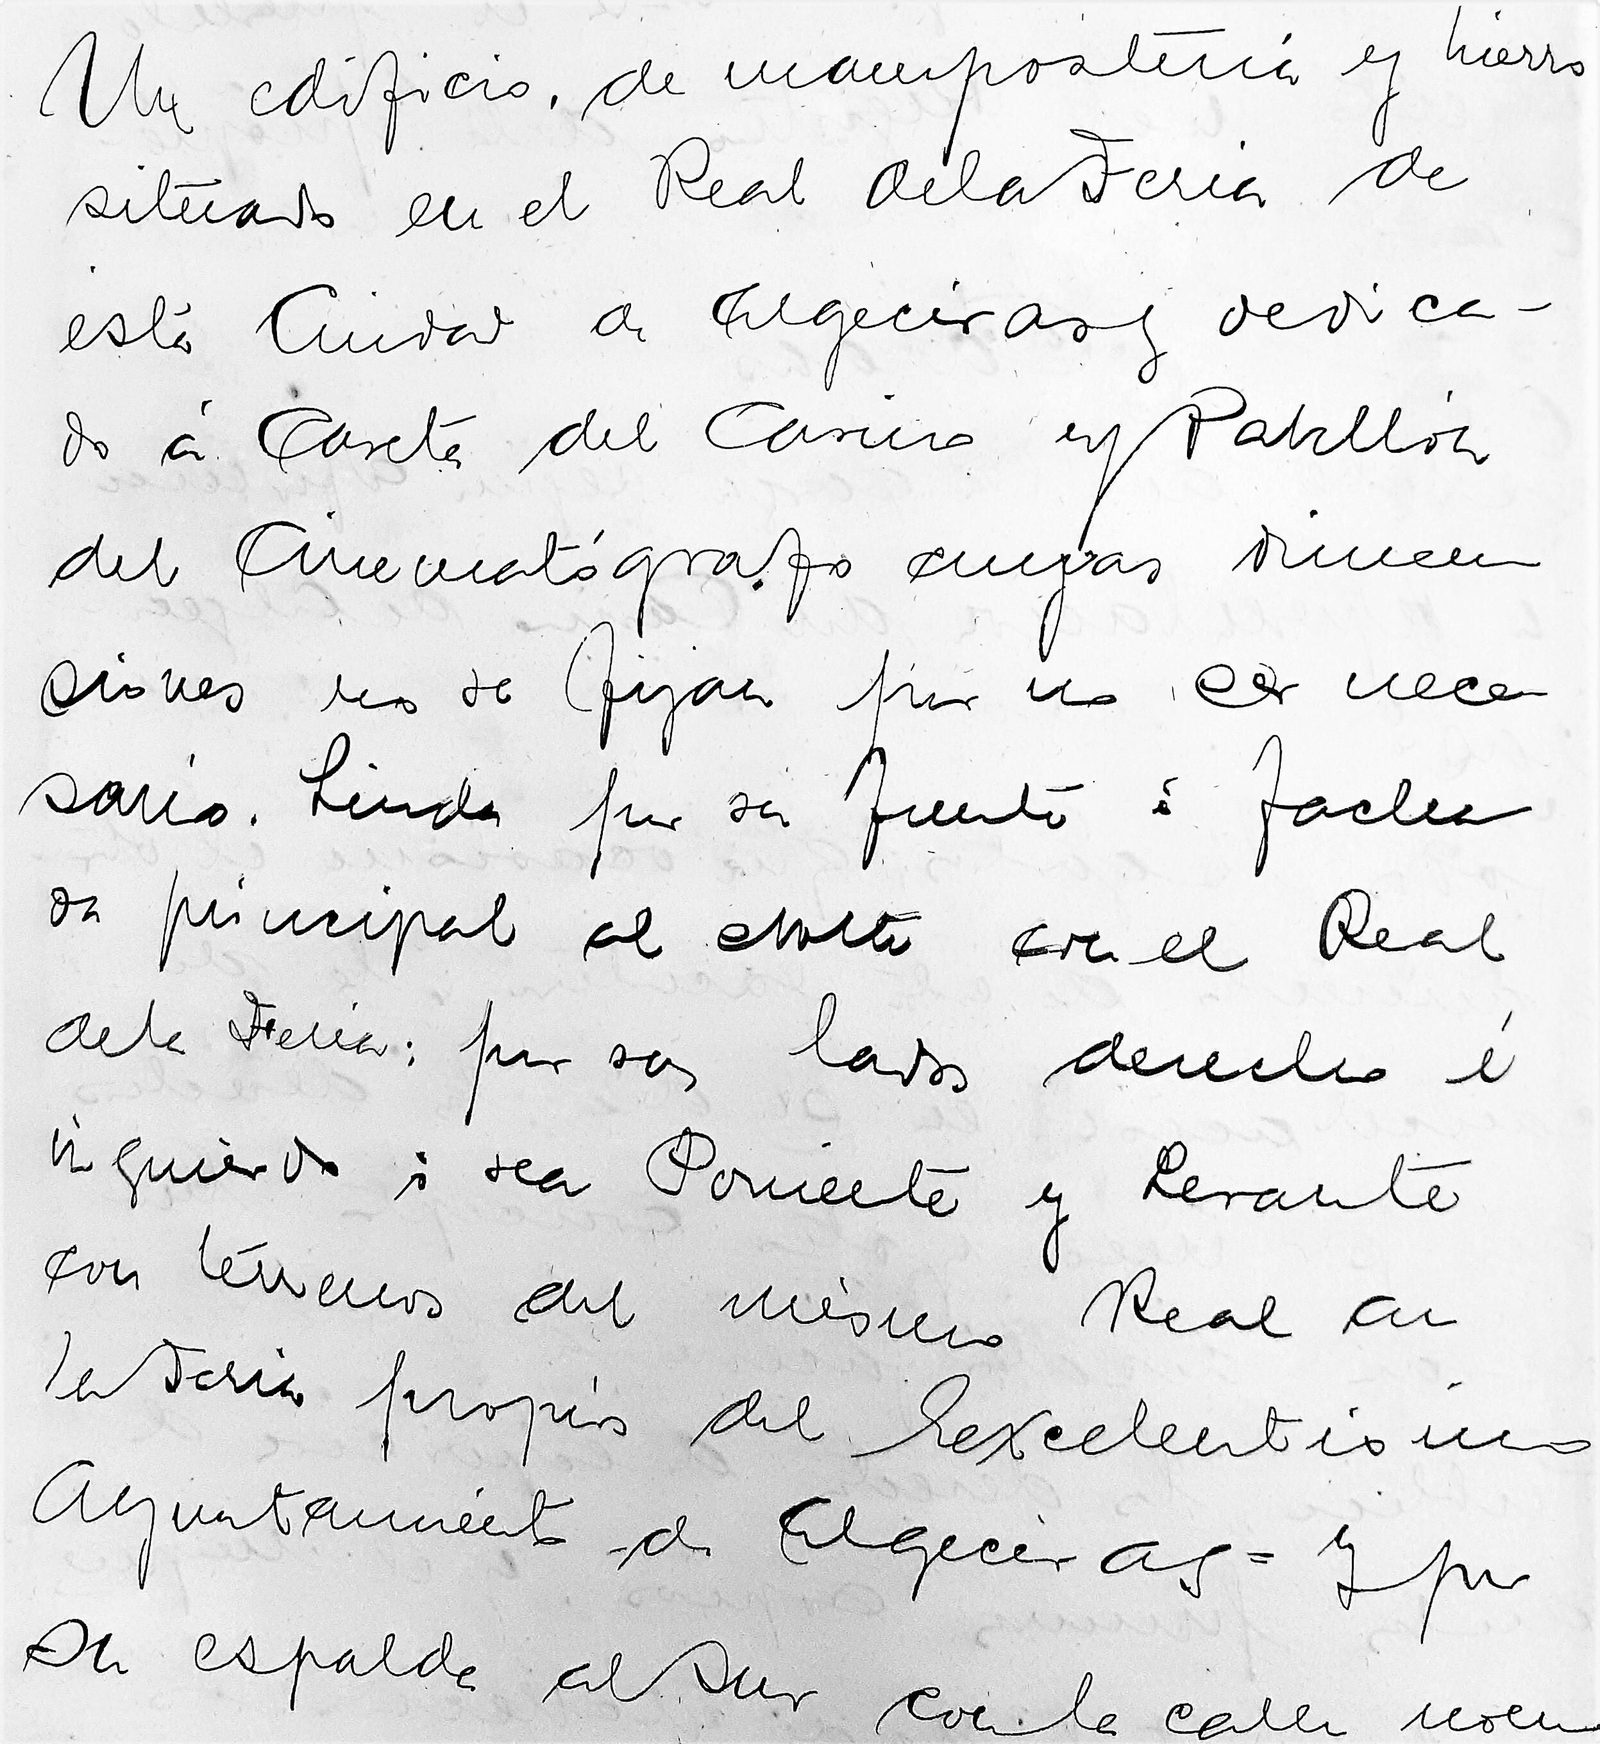 Un edificio, de mampostería y hierro
situado en el Real dela Feria de
está Ciudad de Algeciras y dedica-
do á Caseta del Casino y Pabellón
del Cinematógrafo cuyas dimen
siones no se fijan por no ser nece
sario. Linda por su frente ó facha
da principal al Norte con el Real
dela Feria; por sus lados derecho é
izquierdo ó sea Poniente y Levante
con terrenos del mismo Real de
la Feria propios del Excelentísimo
Ayuntamiento de Algeciras = Y por
su espalda al Sur con la calle